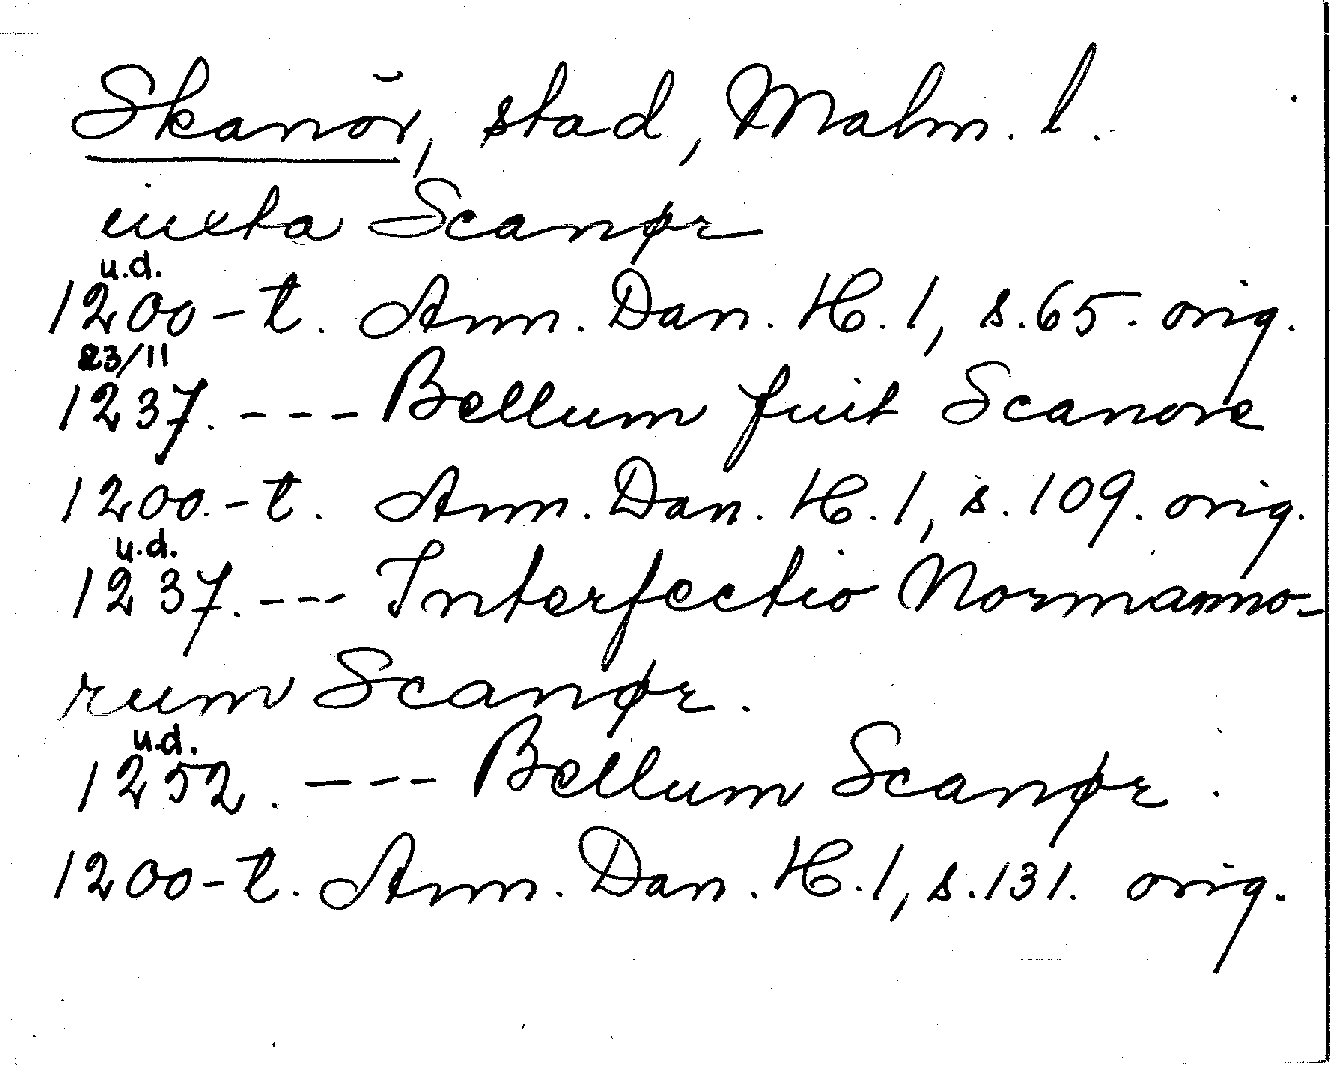 Skanör, stad, Malm. l.
iuxta Scanør
u.d.
1200-t. Ann. Dan. H. 1, s. 65. orig.
23/11
1237. --- Bellum fuit Scanore
1200-t. Ann. Dan. H. 1, s. 109. orig.
u.d.
1237. --- Interfectio Normanno-
rum Scanør.
u.d.
1252. --- Bellum Scanør.
1200-t. Ann. Dan. H. 1, s. 131. orig.